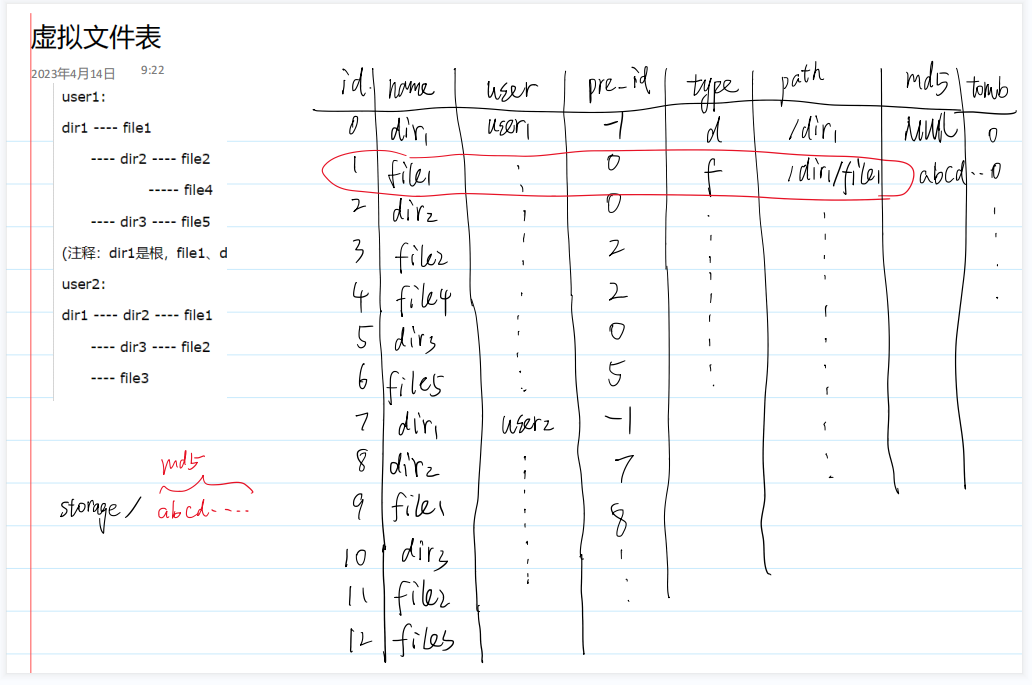 虚拟文件表
2023年4月14日 9:22
user1:
dir1 ---- file1
---- dir2 ---- file2
----- file4
---- dir3 ---- file5
(注释：dir1是根，file1、d
user2:
dir1 ---- dir2 ---- file1
---- dir3 ---- file2
---- file3
md5
storage/ abcd....
id name user pre_id type path md5 tomb
0 dir1 user1 -1 d /dir1 NULL 0
1 file1 0 f /dir1/file1 abcd.. 0
2 dir2 0
3 file2 2
4 file4 2
5 dir3 0
6 file5 5
7 dir1 user2 -1
8 dir2 7
9 file1 8
10 dir3
11 file2
12 file3